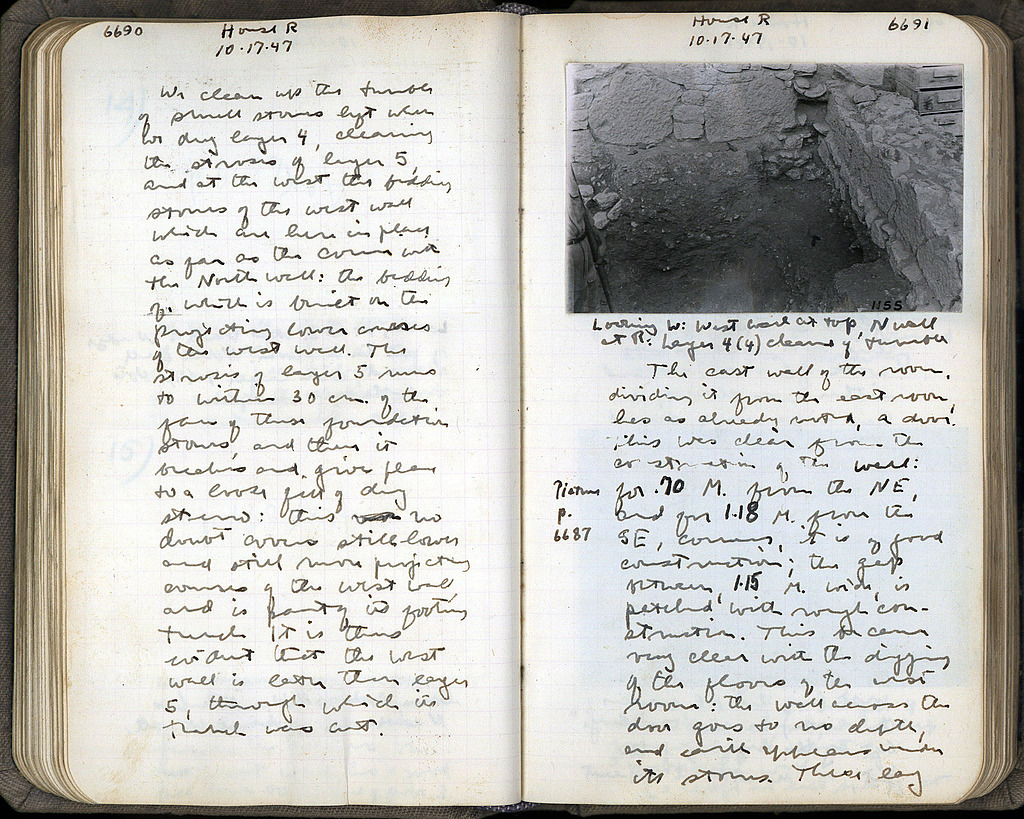 6690
House R
10.17.47
We clean up the tumble
of small stones left when
we dug layer 4, cleaning
the strosis of layer 5,
and at the west the bedding
stones of the west wall
which are here in place
as far as the corner with
the North wall: the bedding
of which is built on the
projecting lower courses
of the west wall. The
strosis of layer 5 runs
to within 30 cm. of the
face of these foundation
stones, and then it
breaks and gives place
to a loose fill of dug
stereo: this no
doubt covers still lower
and still more projecting
courses of the west wall,
and is part of its footing
trench. It is thus
evident that the west
wall is later than layer
5, through which its
trench was cut.
House R
10.17.47
6691
1155
Looking W: West wall at top, N wall
at R: Layer 4(4) cleaned of tumble
The east wall of the room,
dividing it from the east room,
has as already noted, a door.
This was clear from the
construction of the wall:
for .70 M. from the NE,
and for 1.18 M. from the
SE, corners, it is of good
construction; the gap
between, 1.15 M. wide, is
patched with rough con-
struction. This became
very clear with the digging
of the floors of the west
room: the wall across the
door goes to no depth,
and earth appears under
its stones. These lay
Picture
p.
6687